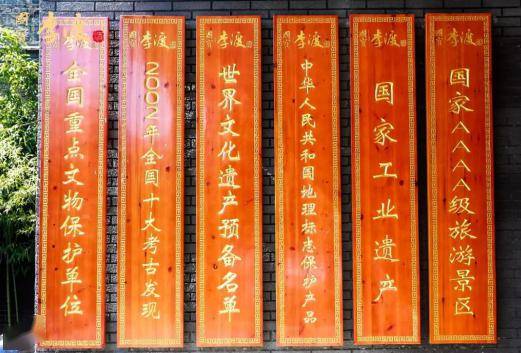 国宝李渡
国宝 李渡
全国重点文物保护单位
国宝 李渡
2002年全国十大考古发现
国宝 李渡
世界文化遗产预备名单
国宝 李渡
中华人民共和国地理标志保护产品
国宝 李渡
国家工业遗产
国宝 李渡
国家AAAA级旅游景区